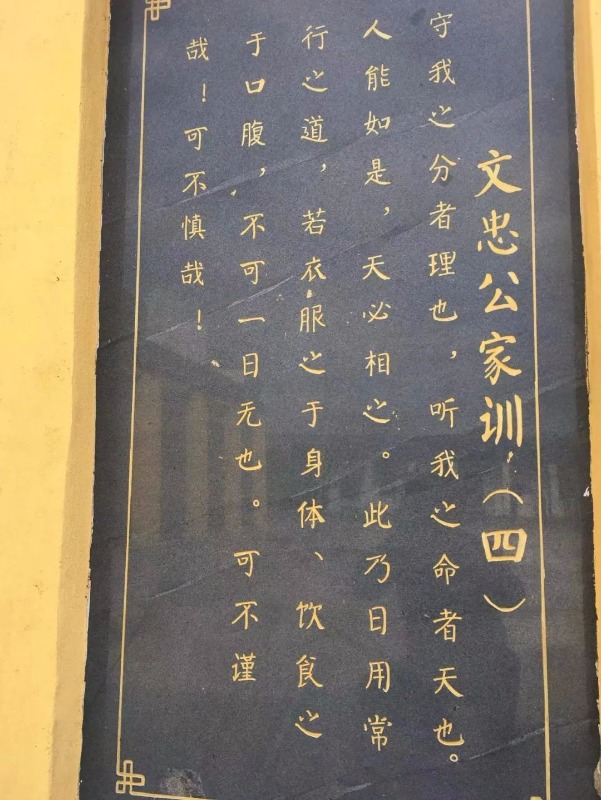 文忠公家训（四）
守我之分者理也，听我之命者天也。
人能如是，天必相之。此乃日用常
行之道，若衣服之于身体、饮食之
于口腹，不可一日无也。可不谨
哉！可不慎哉！